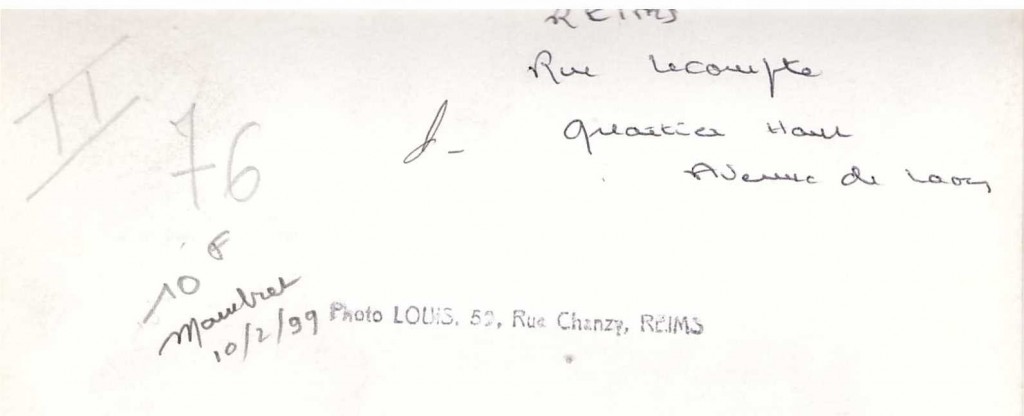 REIMS
Rue Lecompte
Quartier Haut
Avenue de Laon
II
76
10 F
10/2/99
Photo LOUIS, 59, Rue Chanzy, REIMS